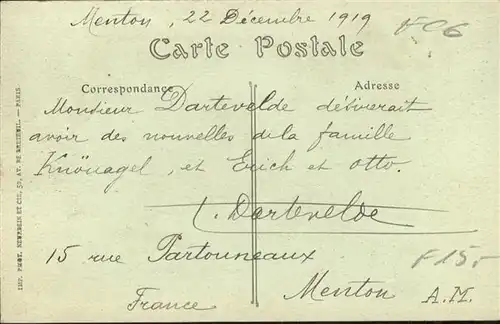 Menton, 22 Décembre 1919
F06
Carte Postale
Correspondance
Adresse
Monsieur Dartevelde désirerait
avoir des nouvelles de la famille
Knöuagel, et Erich et Otto.
L. Dartevelde
15 rue Partouneaux
F15.-
Menton A.M.
France
IMP. PHOT. NEURDEIN ET CIE, 52, AV. DE BRETEUIL. — PARIS